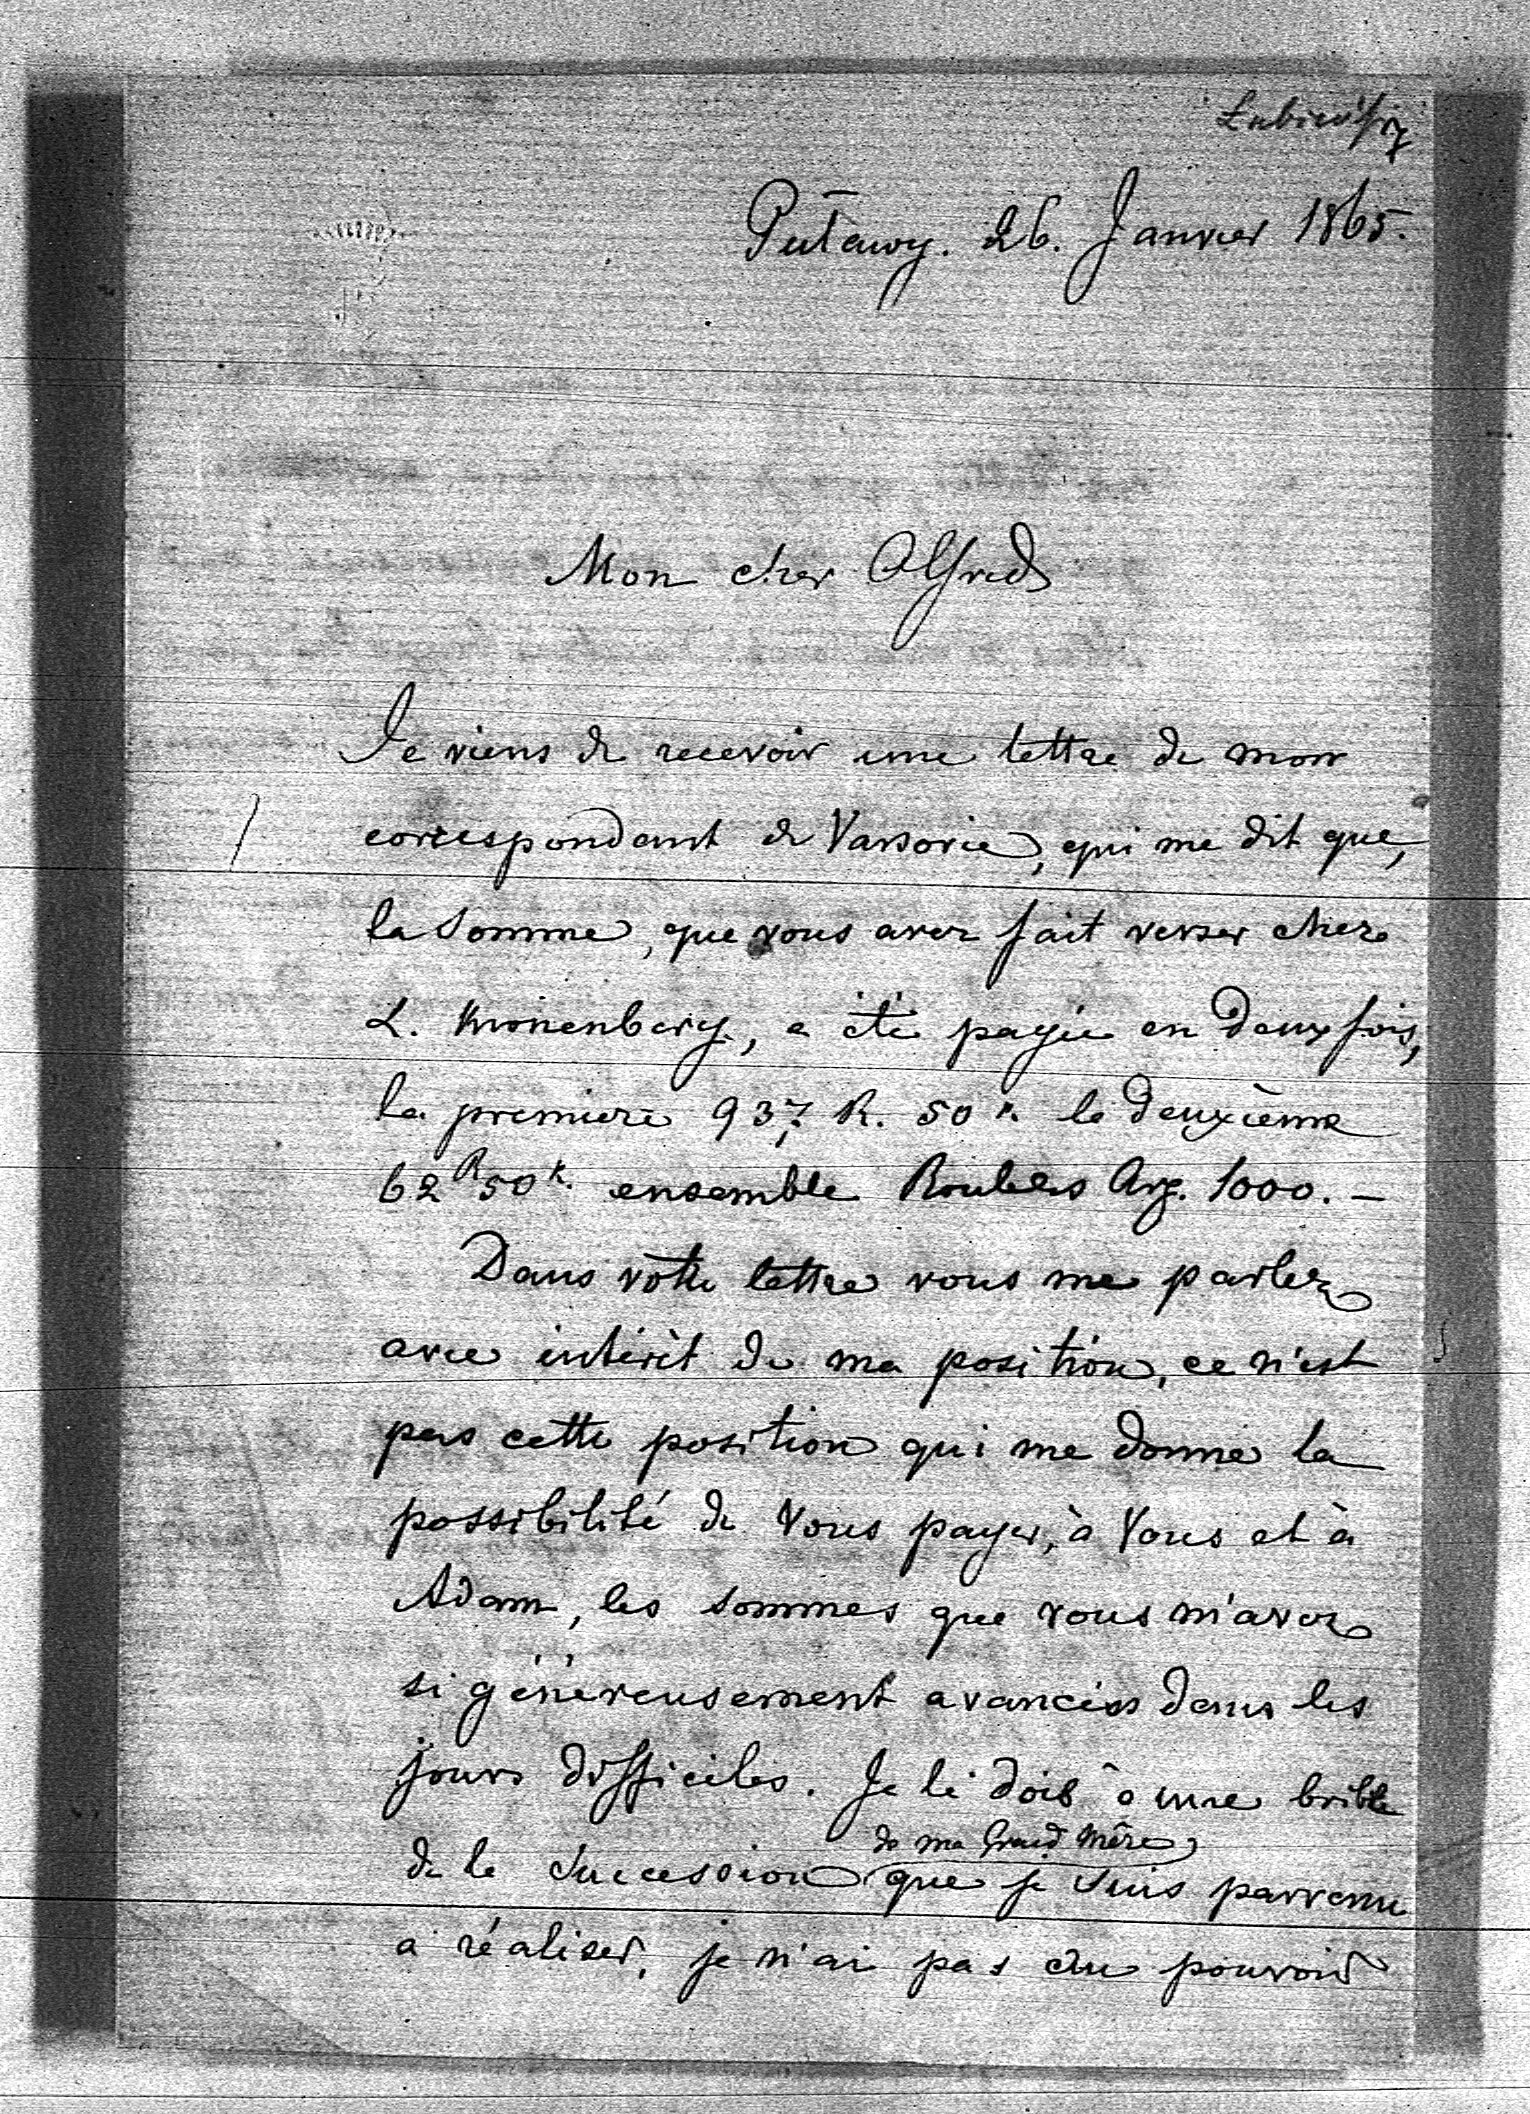 Puławy. 26. Janvier 1865.
Mon cher Alfred
Je viens de recevoir une lettre de mon
correspondant de Varsovie, qui me dit que,
la Somme, que vous avez fait verser chez
L. Kronenberg, a été payée en deux fois,
la premiere 937 R. 50 k. le deuxième
62 R 50 k. ensemble Roubles Arg. 1000. —
Dans votre lettre vous me parlez
avec intérèt de ma position, ce n'est
pas cette position qui me donne la
possibilité de Vous payer, à Vous et à
Adam, les sommes que vous m'avez
si généreusement avancées dans les
jours difficiles. Je le dois à une bribe
de ma Grand Mère
de la Succession que je suis parvenu
a réaliser, je n'ai pas cru pouvoir